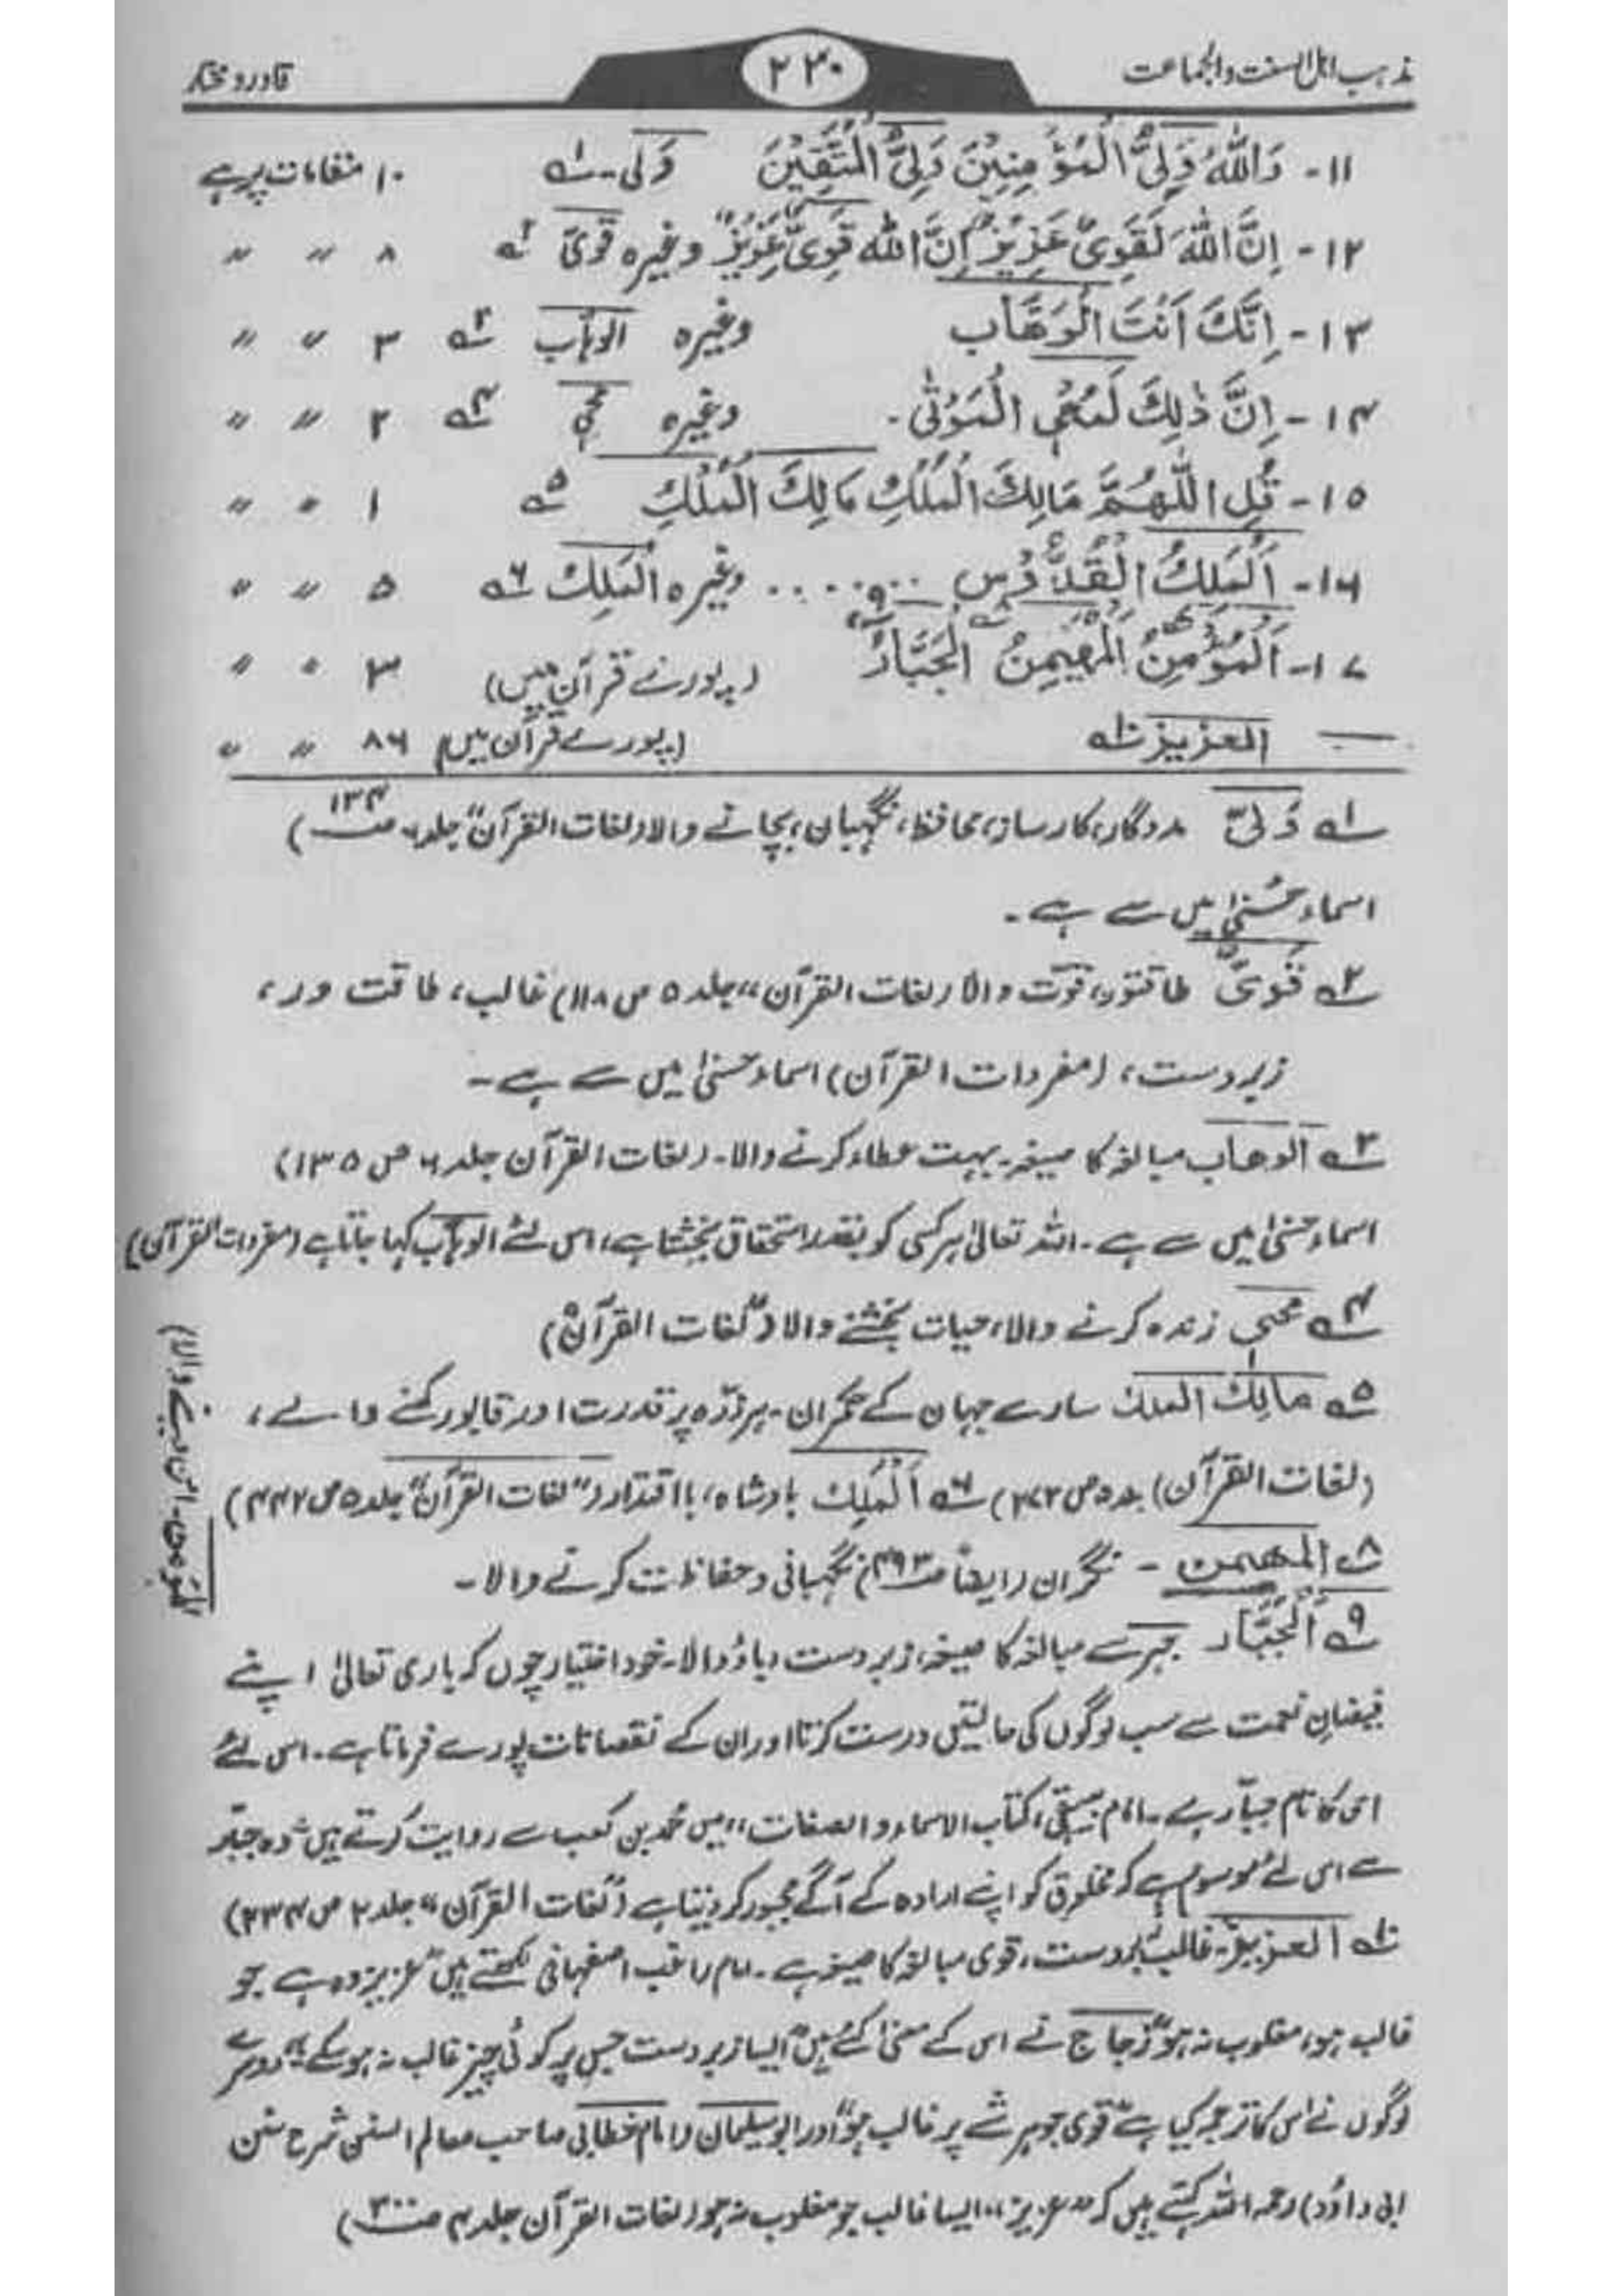 مذہب اہل السنت والجماعت ۲۲۰ قادر و مختار
۱۱- وَاللّٰهُ وَلِيُّ الْمُؤْمِنِيْنَ وَلِيُّ الْمُتَّقِيْنَ وَلی ؎۱ ۱۰ مقامات پر ہے
۱۲- اِنَّ اللّٰهَ لَقَوِيٌّ عَزِيْزٌ اِنَّ اللّٰه قَوِيٌّ عَزِيْزٌ وغیرہ قَوِیّ ؎۲ ۸ 〃 〃
۱۳- اِنَّكَ اَنْتَ الْوَهَّاب وغیرہ الوہّاب ؎۳ ۳ 〃 〃
۱۴- اِنَّ ذٰلِكَ لَمُحْيِ الْمَوْتٰى۔ وغیرہ محی ؎۴ ۲ 〃 〃
۱۵- قُلِ اللّٰهُمَّ مَالِكَ الْمُلْكِ مَالِكَ الْمُلْكِ ؎۵ ۱ 〃 〃
۱۶- اَلْمَلِكُ الْقُدُّوْس ۔۔۔۔ وغیرہ الْمَلِكُ ؎۶ ۵ 〃 〃
۱۷- اَلْمُؤْمِنُ ؎۷ الْمُهَيْمِنُ ؎۸ الْجَبَّارُ ؎۹ (پورے قرآن میں) ۳ 〃 〃
— العزیز ؎۱۰ (پورے قرآن میں) ۸۶ 〃 〃
؎۱ وَلیّ مددگار، کارساز، محافظ، نگہبان، بچانے والا (لغات القرآن" جلد ۶ صـ۱۳۴)
اسماء حُسنیٰ میں سے ہے۔
؎۲ قَوِیٌّ طاقتور، قوّت والا (لغات القرآن" جلد ۵ ص ۱۱۸) غالب، طاقت ور،
زبردست، (مفردات القرآن) اسماء حسنیٰ میں سے ہے۔
؎۳ الوھاب مبالغہ کا صیغہ۔ بہت عطاء کرنے والا۔ (لغات القرآن جلد ۶ ص ۱۳۵)
اسماء حسنیٰ میں سے ہے۔ اللہ تعالیٰ ہر کسی کو بقدر استحقاق بخشتا ہے، اس لئے الوہّاب کہا جاتا ہے (مفردات القرآن)
؎۴ محی زندہ کرنے والا، حیات بخشنے والا ("لغات القرآن")
؎۵ مالِكَ الملك سارے جہان کے حکمران۔ ہر ذرّہ پر قدرت اور قابو رکھنے والے،
(لغات القرآن) جلد ۵ ص ۲۷۲) ؎۶ اَلْمَلِك بادشاہ، بااقتدار ("لغات القرآن" جلد ۵ ص ۴۴۲)
؎۸ المھیمن۔ نگران (ایضاً صـ۴۹۳) نگہبانی و حفاظت کرنے والا۔
؎۹ اَلْجَبَّار جبر سے مبالغہ کا صیغہ، زبردست دباؤ والا۔ خود اختیار چوں کہ باری تعالیٰ اپنے
فیضانِ نعمت سے سب لوگوں کی حالتیں درست کرتا اور ان کے نقصانات پورے فرماتا ہے۔ اس لئے
اس کا نام جبّار ہے۔ امام بیہقی "کتاب الاسماء والصفات" میں محمد بن کعب سے روایت کرتے ہیں "وہ جبّر
سے اس لئے موسوم ہے کہ مخلوق کو اپنے ارادہ کے آگے مجبور کر دیتا ہے ("لغات القرآن" جلد ۲ ص ۲۳۴)
؎۱۰ العزیز۔ غالب، زبردست، قوی مبالغہ کا صیغہ ہے۔ امام راغب اصفہانی لکھتے ہیں "عزیز وہ ہے جو
غالب ہو، مغلوب نہ ہو" زجاج نے اس کے معنیٰ کئے ہیں "ایسا زبردست جس پر کوئی چیز غالب نہ ہو سکے" دوسرے
لوگوں نے اس کا ترجمہ کیا ہے "قوی جو ہر شے پر غالب ہو" اور ابوسلیمان (امام خطابی صاحب معالم السنن شرح سنن
ابی داؤد) رحمہ اللہ کہتے ہیں کہ "عزیز" ایسا غالب جو مغلوب نہ ہو (لغات القرآن جلد ۴ صـ۳۰۰)
المؤمن۔ امن دینے والا)